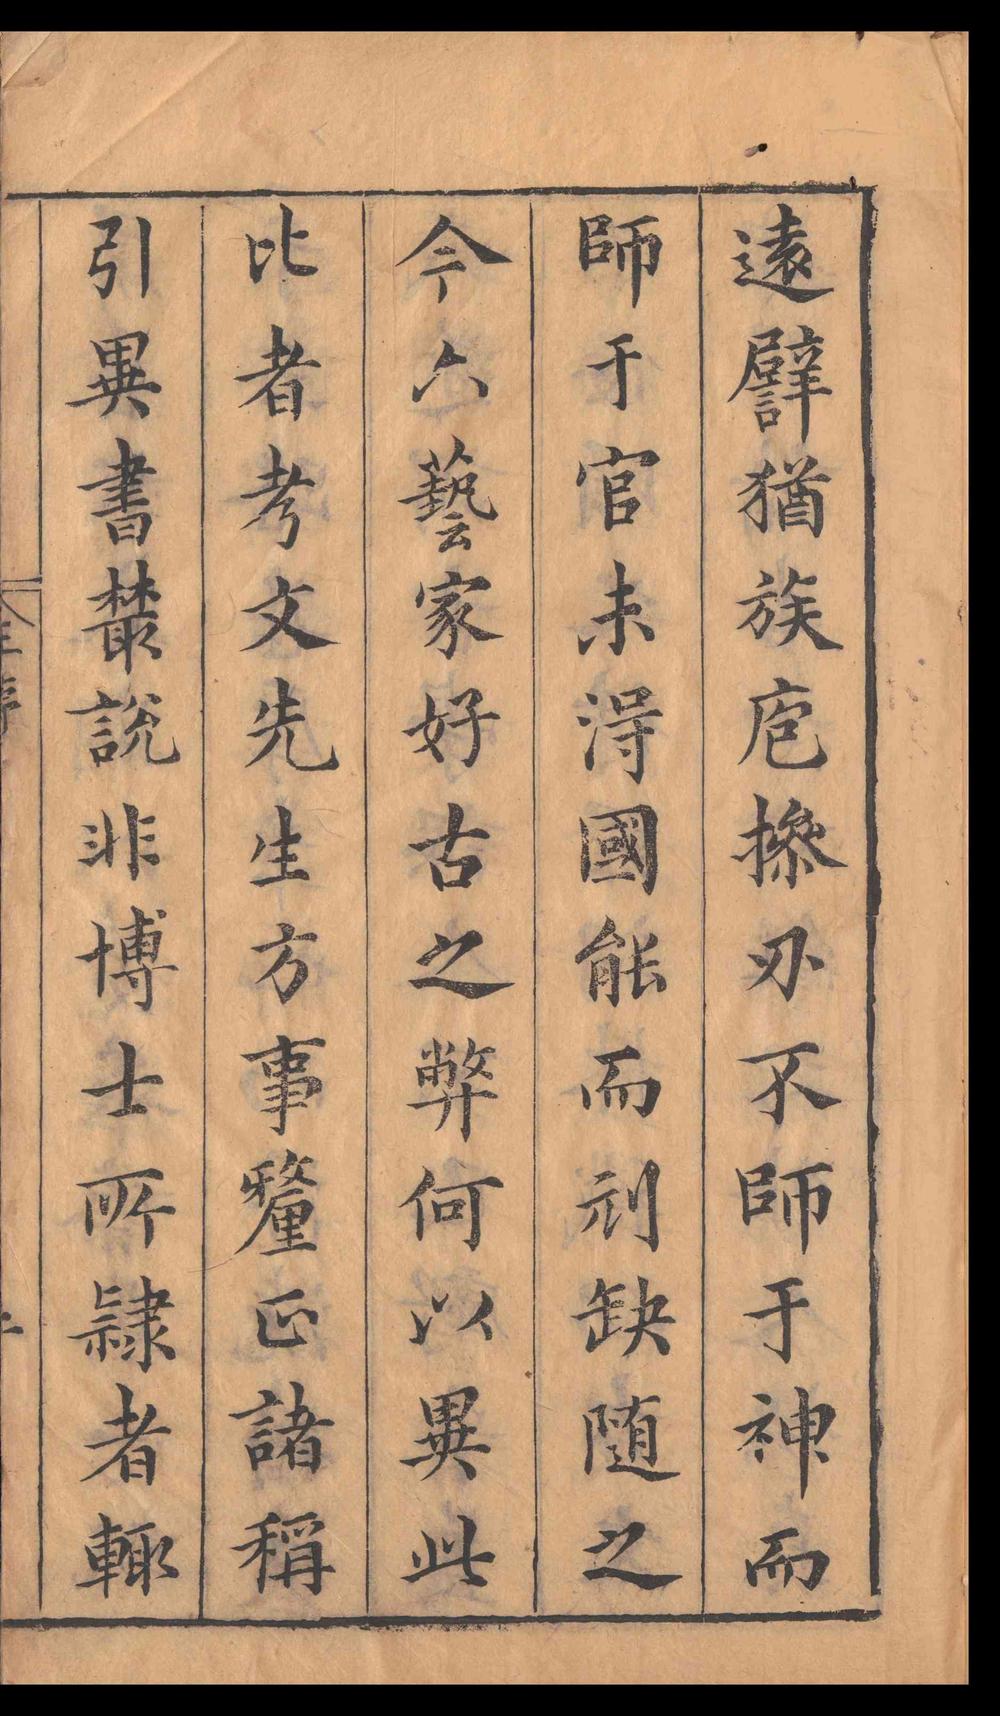 遠譬猶族庖操刃不師于神而
師于官未得國能而刓缺随之
今六藝家好古之弊何以異此
比者考文先生方事釐正諸稱
引異書叢說非博士所隷者輙